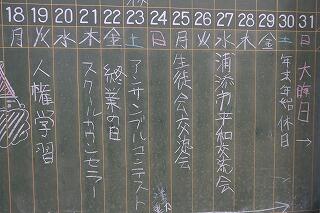 18 19 20 21 22 23 24 25 26 27 28 29 30 31
月 火 水 木 金 土 日 月 火 水 木 金 土 日
人権学習
スクールカウンセラー
終業の日
アンサンブルコンテスト
生徒会交流会
浦添市平和交流会
年末年始休日→
大晦日